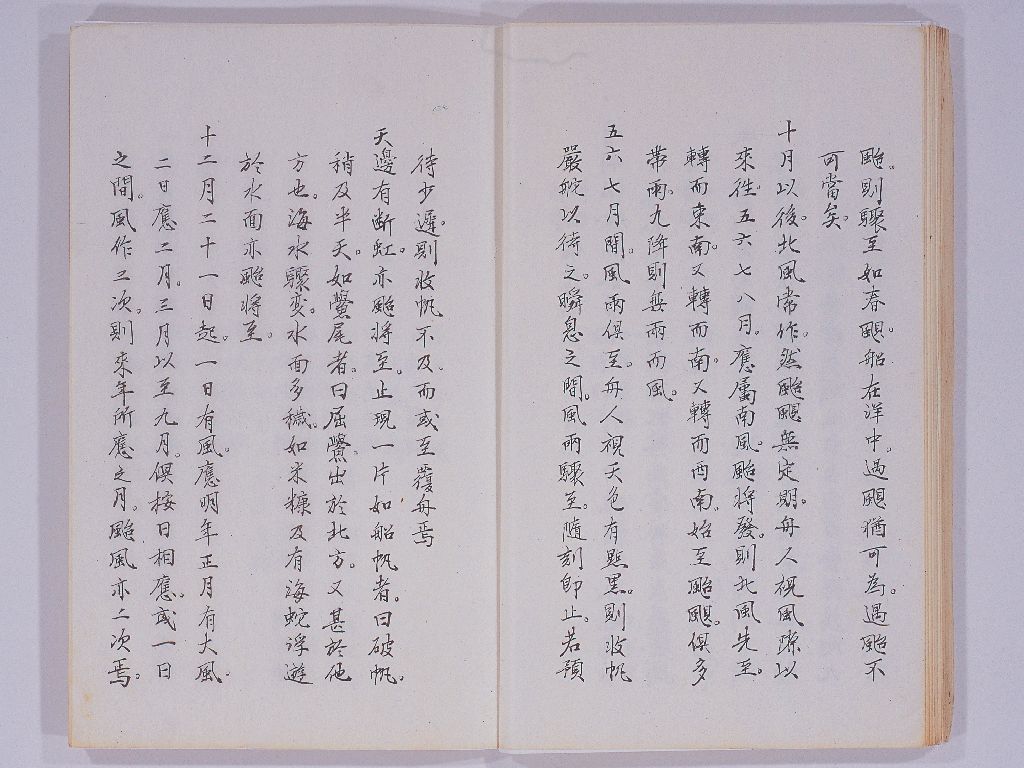 颱。則驟至如春颶。船在洋中。遇颶猶可為。遇颱不
可當矣。
十月以後。北風常作。然颱颶無定期。舟人視風隙以
來往。五六七八月。應屬南風。颱將發。則北風先至。
轉而東南。又轉而南。又轉而西南。始至颱颶。俱多
帶雨。九降則無雨而風。
五六七月間。風雨俱至。舟人視天色有點黑。則收帆
嚴舵以待之。瞬息之間。風雨驟至。隨刻即止。若預
待少遲。則收帆不及。而或至覆舟焉
天邊有断虹。亦颱將至。止現一片如船帆者。曰破帆。
稍及半天。如鱟尾者。曰屈鱟。出於北方。又甚於他
方也。海水驟変。水面多穢。如米糠及有海蛇浮遊
於水面亦颱將至。
十二月二十一日起。一日有風。應明年正月有大風。
二日應二月。三月以至九月。俱按日相應。或一日
之間。風作二次。則來年所應之月。颱風亦二次焉。